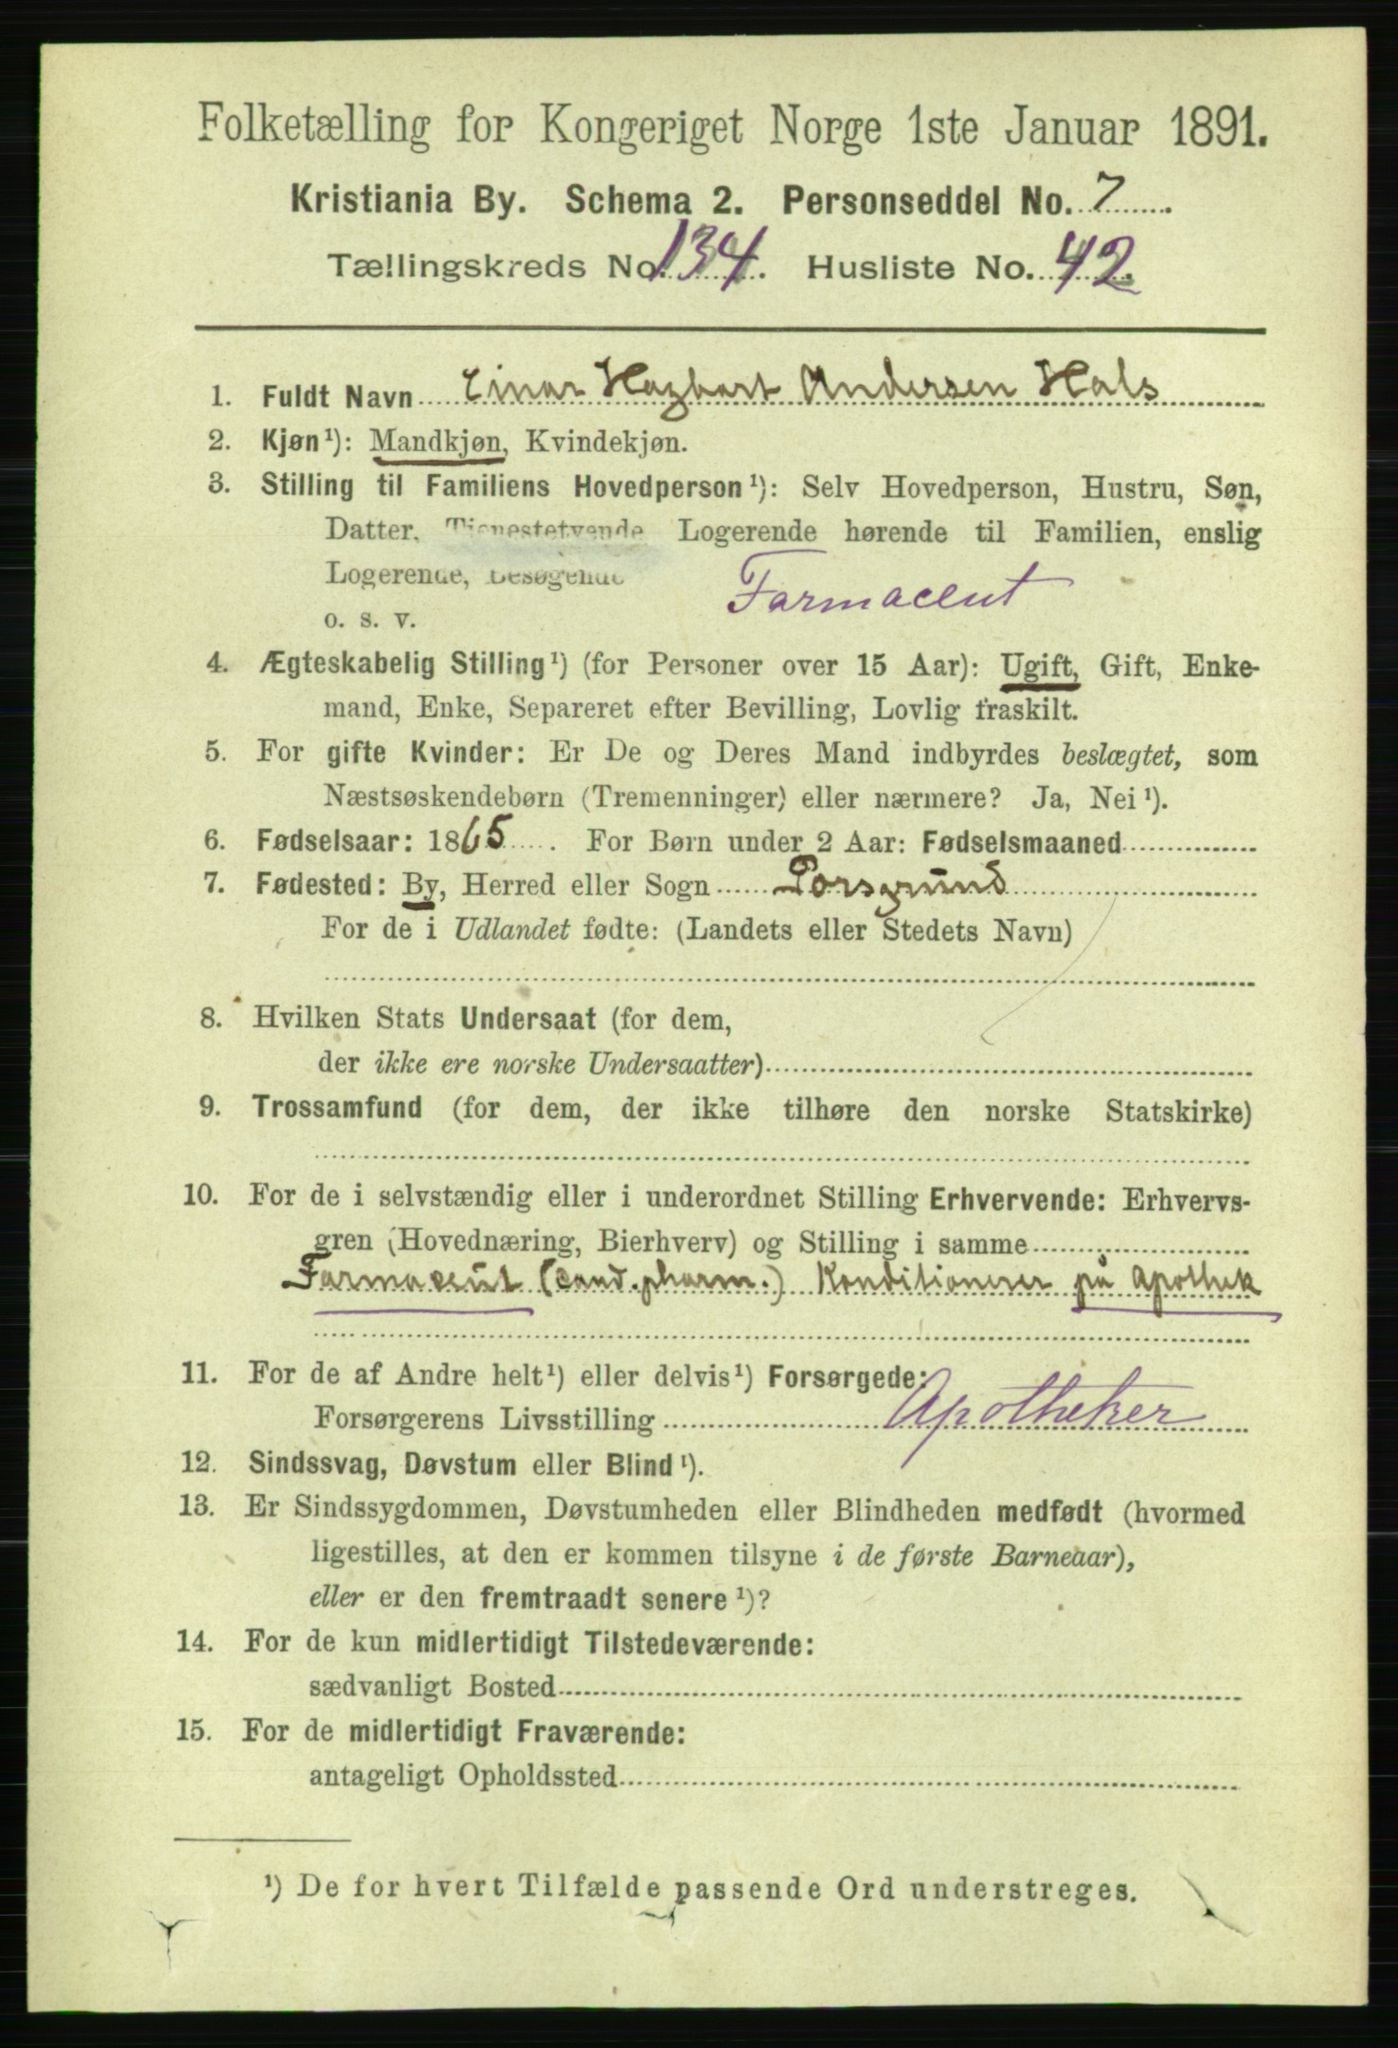 Folketælling for Kongeriget Norge 1ste Januar 1891.
Kristiania By. Schema 2. Personseddel No. 7.
Tællingskreds No. 134. Husliste No. 42.
1. Fuldt Navn Einar Hagbart Andersen Hals
2. Kjøn¹): Mandkjøn, Kvindekjøn.
3. Stilling til Familiens Hovedperson¹): Selv Hovedperson, Hustru, Søn,
Datter, Tjenestetyende Logerende hørende til Familien, enslig
Logerende, Besøgende
Farmaceut
o. s. v.
4. Ægteskabelig Stilling¹) (for Personer over 15 Aar): Ugift, Gift, Enke-
mand, Enke, Separeret efter Bevilling, Lovlig fraskilt.
5. For gifte Kvinder: Er De og Deres Mand indbyrdes beslægtet, som
Næstsøskendebørn (Tremenninger) eller nærmere? Ja, Nei¹).
6. Fødselsaar: 1865. For Børn under 2 Aar: Fødselsmaaned
7. Fødested: By, Herred eller Sogn Porsgrund
For de i Udlandet fødte: (Landets eller Stedets Navn)
8. Hvilken Stats Undersaat (for dem,
der ikke ere norske Undersaatter)
9. Trossamfund (for dem, der ikke tilhøre den norske Statskirke)
10. For de i selvstændig eller i underordnet Stilling Erhvervende: Erhvervs-
gren (Hovednæring, Bierhverv) og Stilling i samme
Farmaceut (cand. pharm.) Konditionerer på Apothek
11. For de af Andre helt¹) eller delvis¹) Forsørgede:
Forsørgerens Livsstilling Apotheker
12. Sindssvag, Døvstum eller Blind¹).
13. Er Sindssygdommen, Døvstumheden eller Blindheden medfødt (hvormed
ligestilles, at den er kommen tilsyne i de første Barneaar),
eller er den fremtraadt senere¹)?
14. For de kun midlertidigt Tilstedeværende:
sædvanligt Bosted
15. For de midlertidigt Fraværende:
antageligt Opholdssted
¹) De for hvert Tilfælde passende Ord understreges.